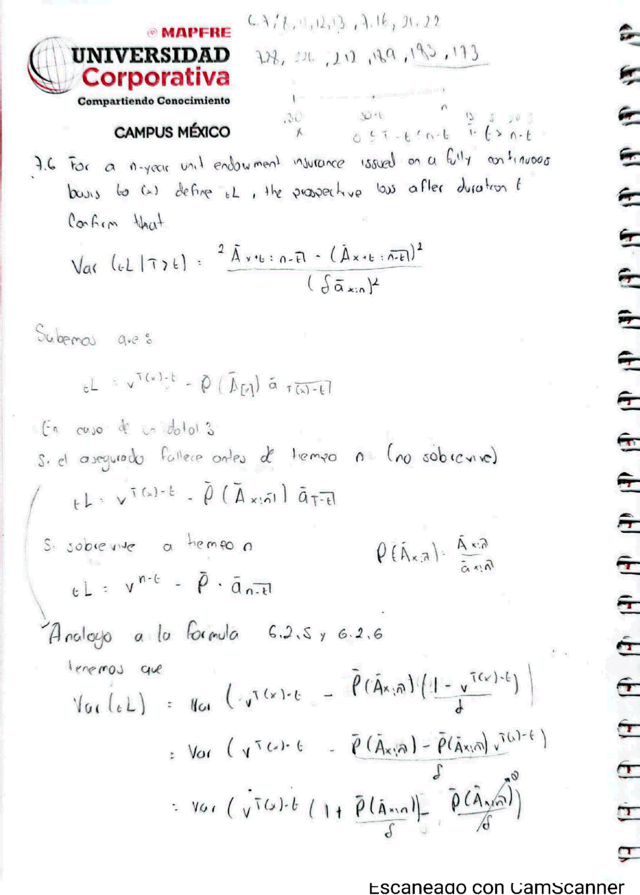 MAPFRE
UNIVERSIDAD
Corporativa
Compartiendo Conocimiento
CAMPUS MÉXICO
7.6 For a n-year unit endowment insurance issued on a fully continuous
basis to (x) define tL, the prospective loss after duration t
Confirm that
Var (tL | T>t) = ²Āx+t:n-t| - (Āx+t:n-t|)² / (δ āx:n|)²
Sabemos que:
tL = v^T(x)-t - P̄ (Ā[x]) ā T(x)-t|
En caso de un dotal:
Si el asegurado fallece antes de tiempo n (no sobrevive)
tL = v^T(x)-t - P̄ (Āx:n|) ā T-t|
Si sobrevive a tiempo n
P(Āx:n|) = Āx:n| / āx:n|
tL = v^n-t - P̄ · ā n-t|
Analogo a la formula 6.2.5 y 6.2.6
tenemos que
Var (tL) = Var ( v^T(x)-t - P̄(Āx:n|) (1 - v^T(x)-t) / δ )
= Var ( v^T(x)-t - P̄(Āx:n|) - P̄(Āx:n|) v^T(x)-t / δ )
= Var ( v^T(x)-t (1 + P̄(Āx:n|) / δ) - P̄(Āx:n|) / δ ) 0
Escaneado con CamScanner